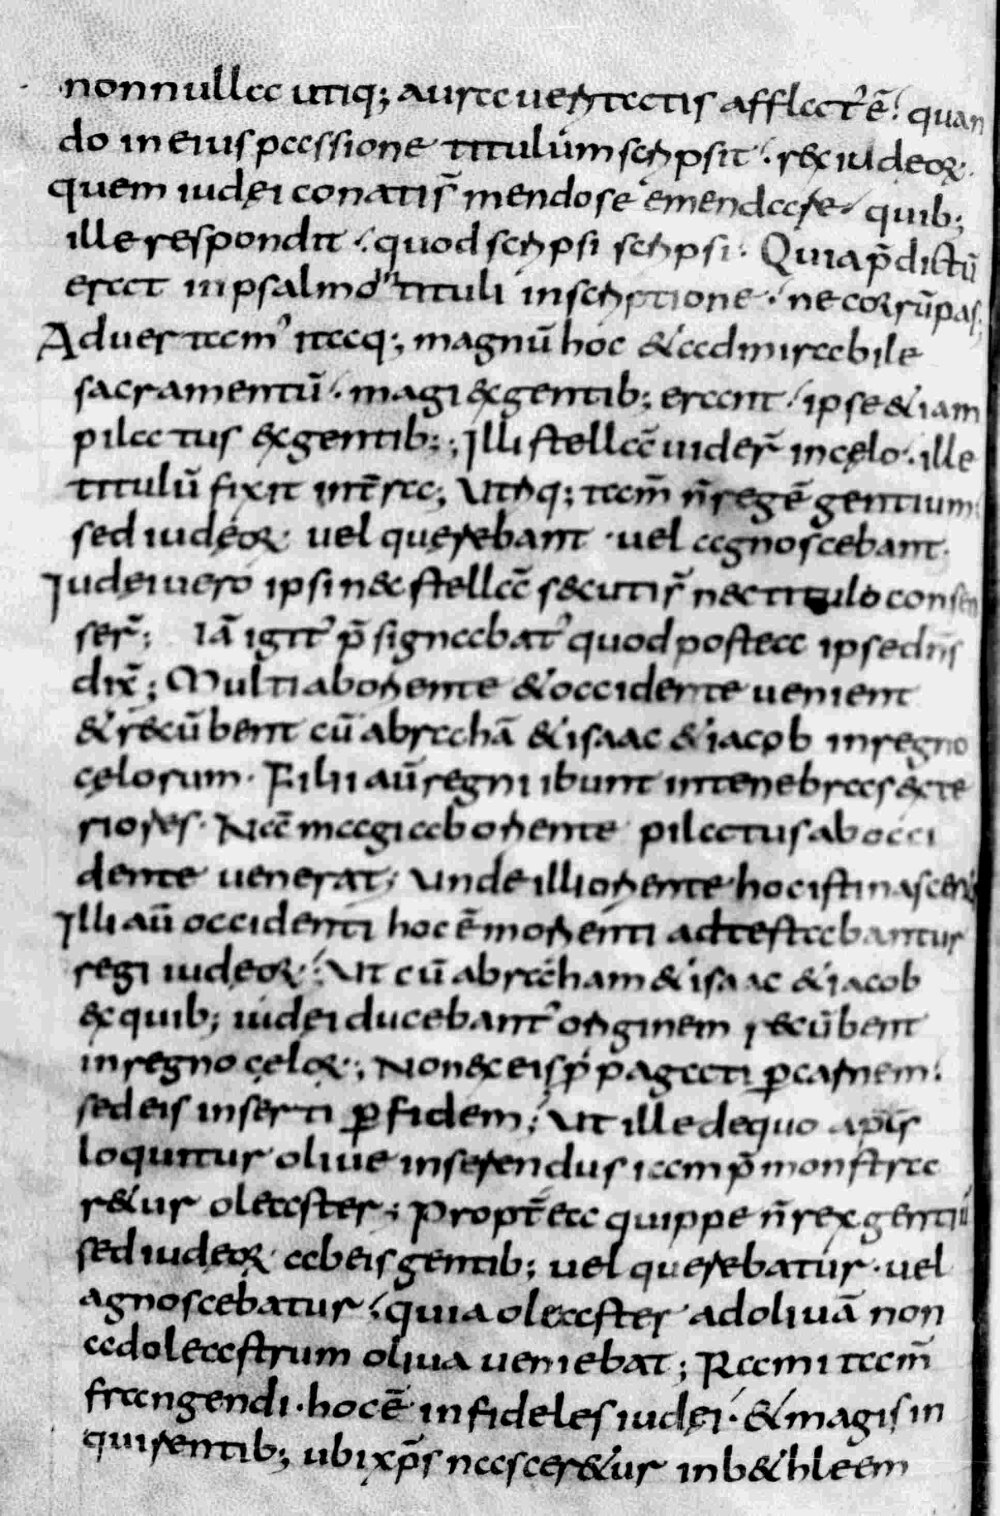 nonnulla utiq; aura ueritatis afflat᾽ ē quan
do in eius passione titulum scripsit · rex iudeoꝝ ·
quem iudei conatis̄ mendose emendare quib;
ille respondit quod scripsi scripsi · Quia p̄dictū
erat in psalmo tituli inscriptione · ne corrūpas;
Aduertam᾽ itaq; magnū hoc & admirabile
sacramentū · magi ex gentib; erant · ipse & iam
pilatus ex gentib;; Illi stellā uider̄ in cęlo · ille
titulū fixit in t̄ra; Utriq; tam̄ n̄ regē gentium
sed iudęoꝝ · uel querebant · uel agnoscebant ·
Iudei uero ipsi nec stellā secuti s̄ nec titulo consen
ser̄; Iā igit᾽ p̄signabat᾽ quod postea ipse dn̄s
dix̄; Multi ab oriente & occidente uenient
& recūbent cū abrahā & isaac & iacob in regno
cęlorum · Filii aū regni ibunt in tenebras exte
riores · Nā magi ab oriente pilatus ab occi
dente uenerat; Unde illi orienti hoc ē
Illi aū occidenti hoc ē morienti adtestabantur
regi iudeoꝝ · Ut cū abraham & isaac & iacob
ex quib; iudei ducebant᾽ originem recūbent
in regno cęloꝝ; Non ex eis p̄pagati ꝑ carnem ·
sed eis inserti ꝑ fidem; Ut ille de quo ap̄ls
loquitur oliue inserendus iam p̄monstra
r&ur oleaster; Propt̄ea quippe n̄ rex gentiū
sed iudeoꝝ ab eis gentib; uel querebatur · uel
agnoscebatur · quia oleaster ad oliuā non
ad oleastrum oliua ueniebat; Rami tam̄
frangendi · hoc ē infideles iudęi · & magis in
quirentib; ubi xp̄s nascer&ur in b&hleem